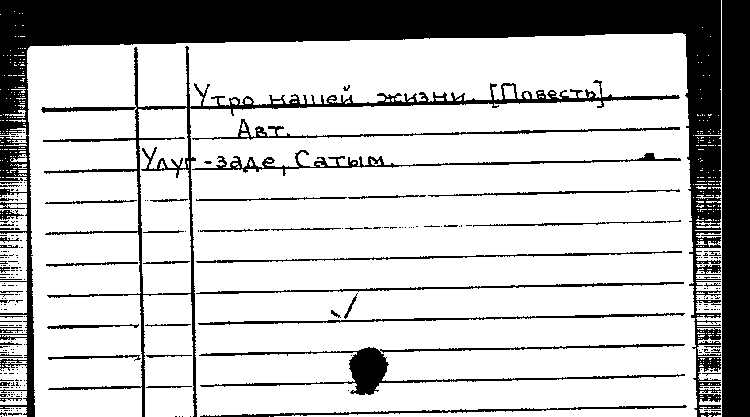 Утро нашей жизни. [Повесть].
Авт.
Улуг-заде, Сатым.